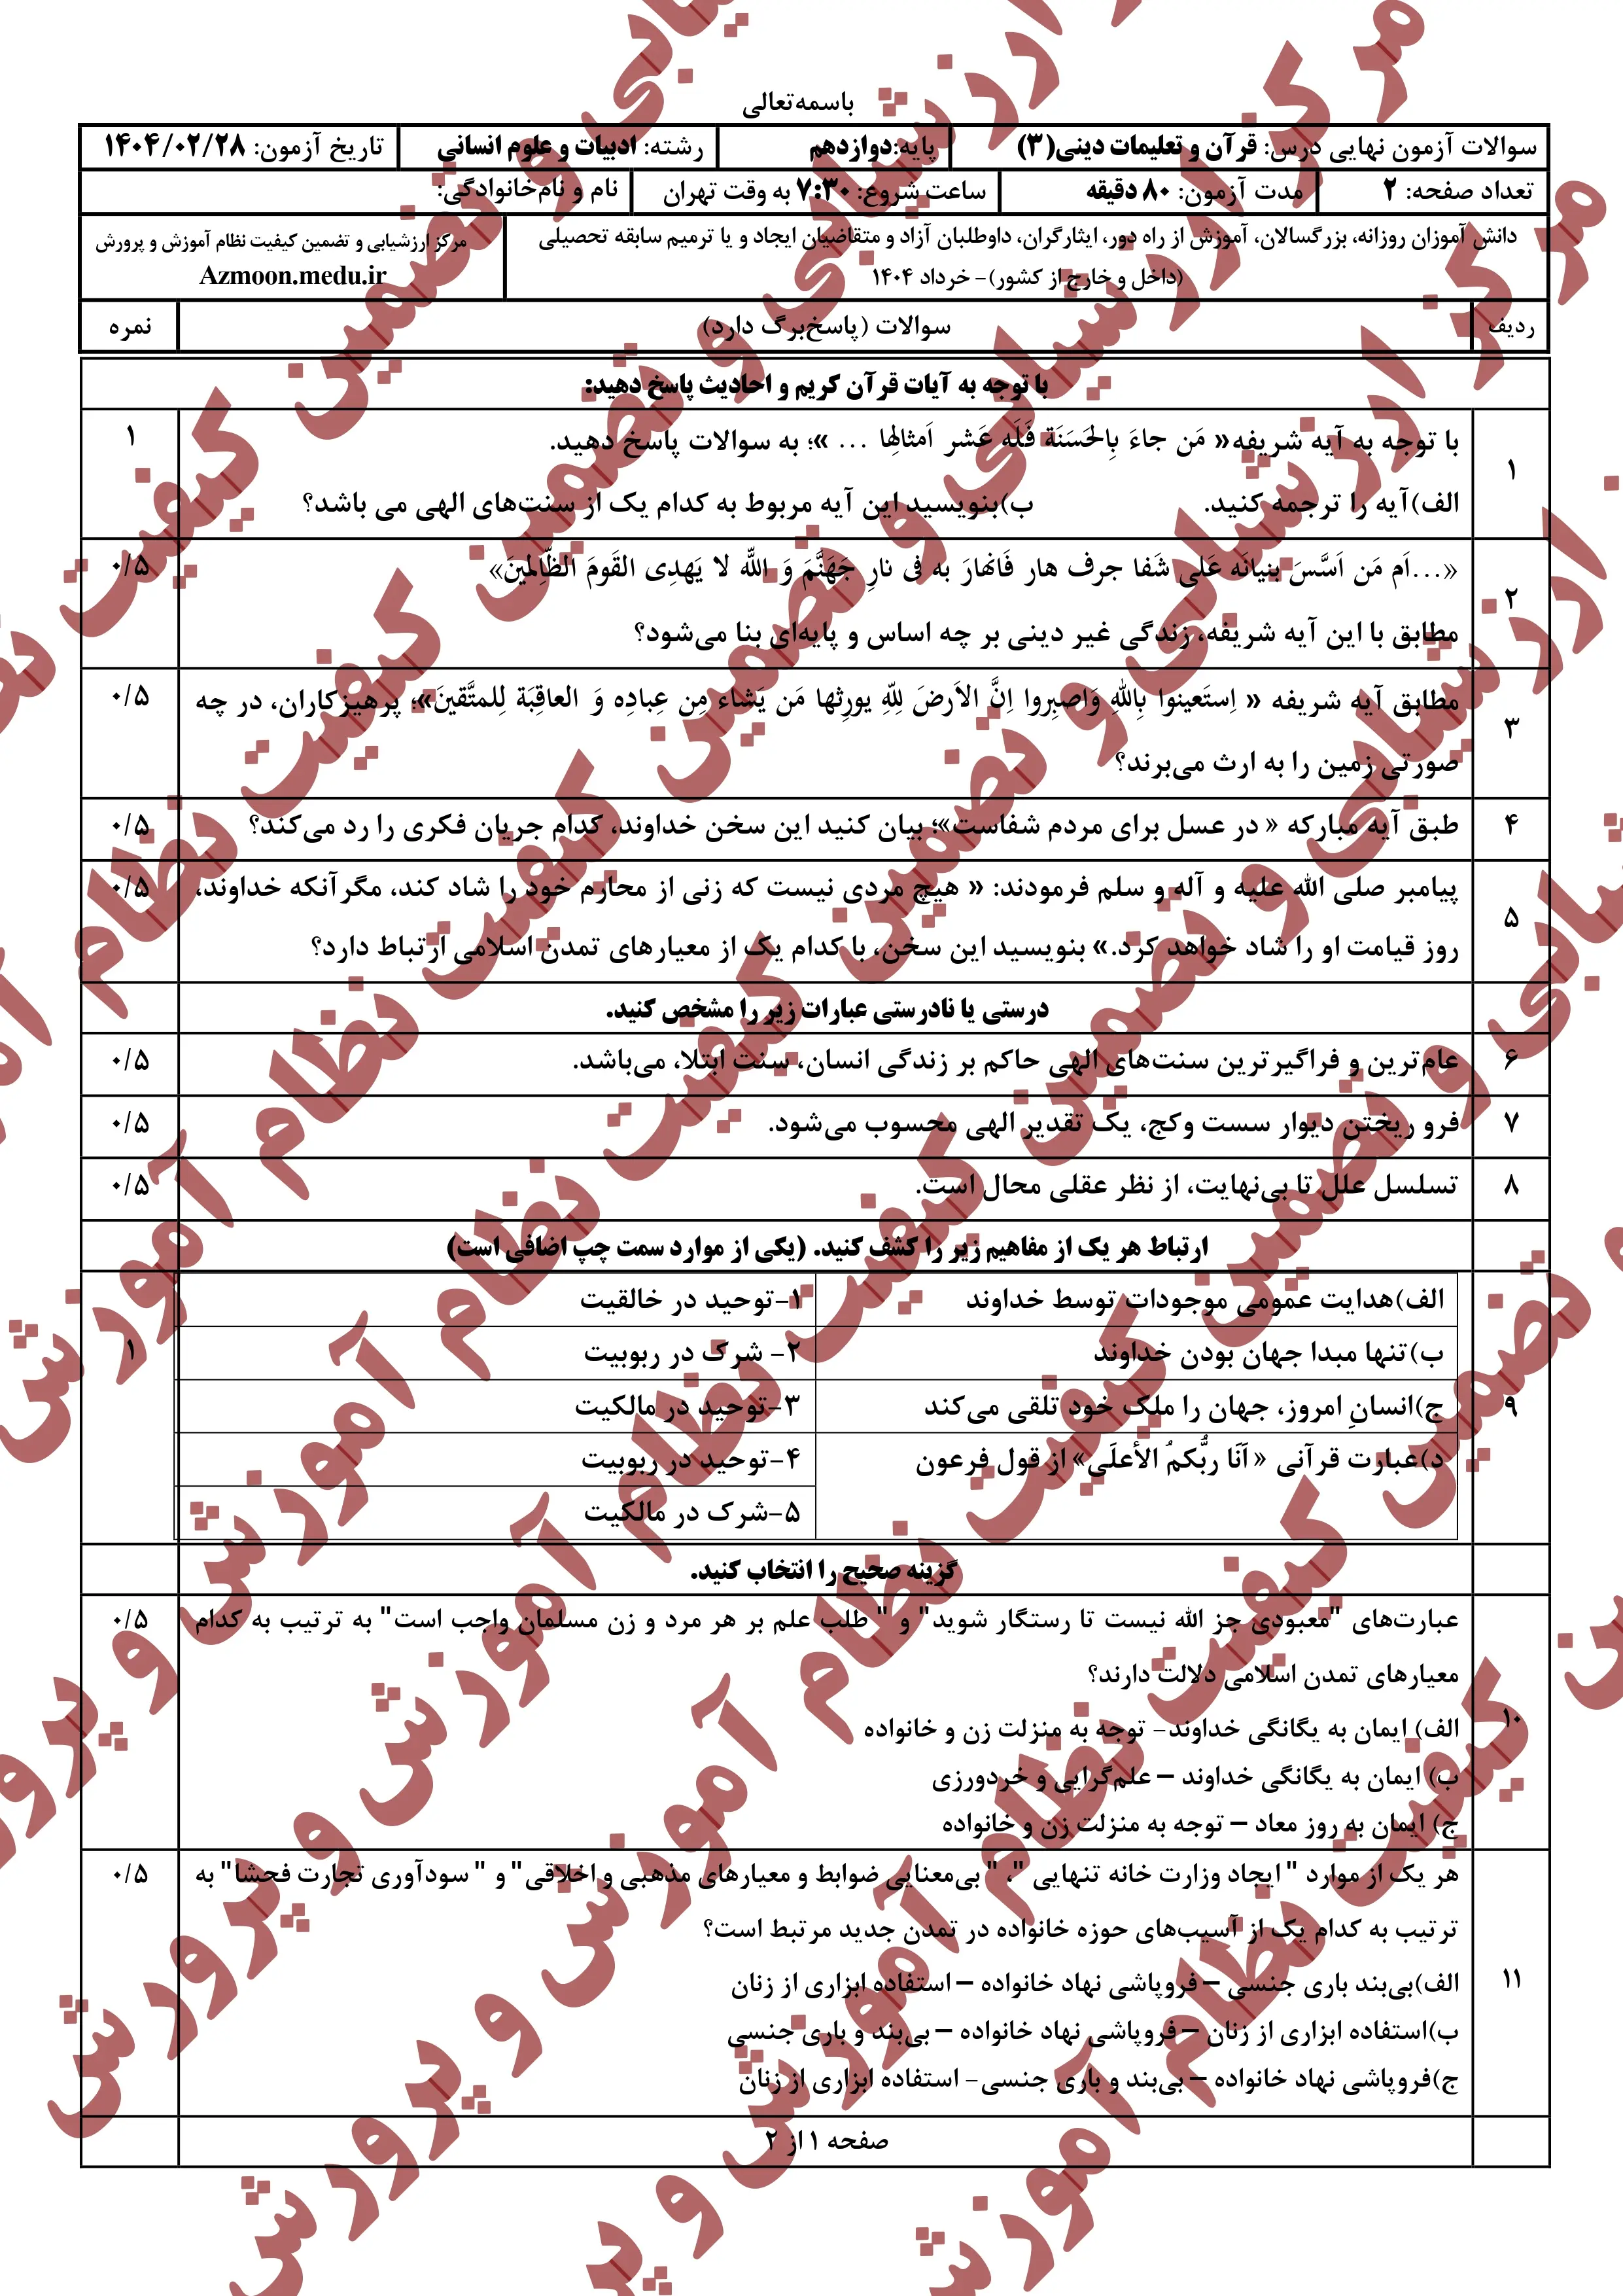 باسمه‌تعالی
سوالات آزمون نهایی درس: قرآن و تعلیمات دینی(۳)
پایه:دوازدهم
رشته: ادبیات و علوم انسانی
تاریخ آزمون: ۱۴۰۴/۰۲/۲۸
تعداد صفحه: ۲
مدت آزمون: ۸۰ دقیقه
ساعت شروع: ۷:۳۰ به وقت تهران
نام و نام‌خانوادگی:
دانش آموزان روزانه، بزرگسالان، آموزش از راه دور، ایثارگران، داوطلبان آزاد و متقاضیان ایجاد و یا ترمیم سابقه تحصیلی
(داخل و خارج از کشور)- خرداد ۱۴۰۴
مرکز ارزشیابی و تضمین کیفیت نظام آموزش و پرورش
Azmoon.medu.ir
ردیف
سوالات (پاسخ‌برگ دارد)
نمره
با توجه به آیات قرآن کریم و احادیث پاسخ دهید:
۱
با توجه به آیه شریفه« مَن جاءَ بِالحَسَنَة فَلَه عَشر اَمثالِها ... »؛ به سوالات پاسخ دهید.
۱
الف)آیه را ترجمه کنید.
ب)بنویسید این آیه مربوط به کدام یک از سنت‌های الهی می باشد؟
۲
«...اَم مَن اَسَّسَ بنیانَه عَلی شَفا جرف هار فَانهارَ به فی نارِ جَهَنَّمَ وَ اللّٰه لا یَهدِی القَومَ الظّالِمینَ»
۰/۵
مطابق با این آیه شریفه، زندگی غیر دینی بر چه اساس و پایه‌ای بنا می‌شود؟
۳
مطابق آیه شریفه « اِستَعینوا بِاللّٰهِ وَاصبِروا اِنَّ الاَرضَ لِلّٰهِ یورِثها مَن یَشاء مِن عِبادِه وَ العاقِبَة لِلمتَّقینَ»؛ پرهیزکاران، در چه
۰/۵
صورتی زمین را به ارث می‌برند؟
۴
طبق آیه مبارکه « در عسل برای مردم شفاست»؛ بیان کنید این سخن خداوند، کدام جریان فکری را رد می‌کند؟
۰/۵
۵
پیامبر صلی الله علیه و آله و سلم فرمودند: « هیچ مردی نیست که زنی از محارم خود را شاد کند، مگرآنکه خداوند،
۰/۵
روز قیامت او را شاد خواهد کرد.» بنویسید این سخن، با کدام یک از معیارهای تمدن اسلامی ارتباط دارد؟
درستی یا نادرستی عبارات زیر را مشخص کنید.
۶
عام‌ترین و فراگیرترین سنت‌های الهی حاکم بر زندگی انسان، سنت ابتلا، می‌باشد.
۰/۵
۷
فرو ریختن دیوار سست وکج، یک تقدیر الهی محسوب می‌شود.
۰/۵
۸
تسلسل علل تا بی‌نهایت، از نظر عقلی محال است.
۰/۵
ارتباط هر یک از مفاهیم زیر را کشف کنید. (یکی از موارد سمت چپ اضافی است)
۹
الف)هدایت عمومی موجودات توسط خداوند
۱-توحید در خالقیت
ب)تنها مبدا جهان بودن خداوند
۲- شرک در ربوبیت
۱
ج)انسانِ امروز، جهان را ملک خود تلقی می‌کند
۳-توحید در مالکیت
د)عبارت قرآنی « اَنَا ربُّکمُ الأعلَی» از قول فرعون
۴-توحید در ربوبیت
۵-شرک در مالکیت
گزینه صحیح را انتخاب کنید.
۱۰
عبارت‌های "معبودی جز الله نیست تا رستگار شوید" و " طلب علم بر هر مرد و زن مسلمان واجب است" به ترتیب به کدام
۰/۵
معیارهای تمدن اسلامی دلالت دارند؟
الف) ایمان به یگانگی خداوند- توجه به منزلت زن و خانواده
ب) ایمان به یگانگی خداوند – علم‌گرایی و خردورزی
ج) ایمان به روز معاد – توجه به منزلت زن و خانواده
۱۱
هر یک از موارد " ایجاد وزارت خانه تنهایی "، " بی‌معنایی ضوابط و معیارهای مذهبی و اخلاقی" و " سودآوری تجارت فحشا" به
۰/۵
ترتیب به کدام یک از آسیب‌های حوزه خانواده در تمدن جدید مرتبط است؟
الف)بی‌بند باری جنسی – فروپاشی نهاد خانواده – استفاده ابزاری از زنان
ب)استفاده ابزاری از زنان – فروپاشی نهاد خانواده – بی‌بند و باری جنسی
ج)فروپاشی نهاد خانواده – بی‌بند و باری جنسی- استفاده ابزاری از زنان
صفحه ۱ از ۲
مرکز ارزشیابی و تضمین کیفیت نظام آموزش و پرورش